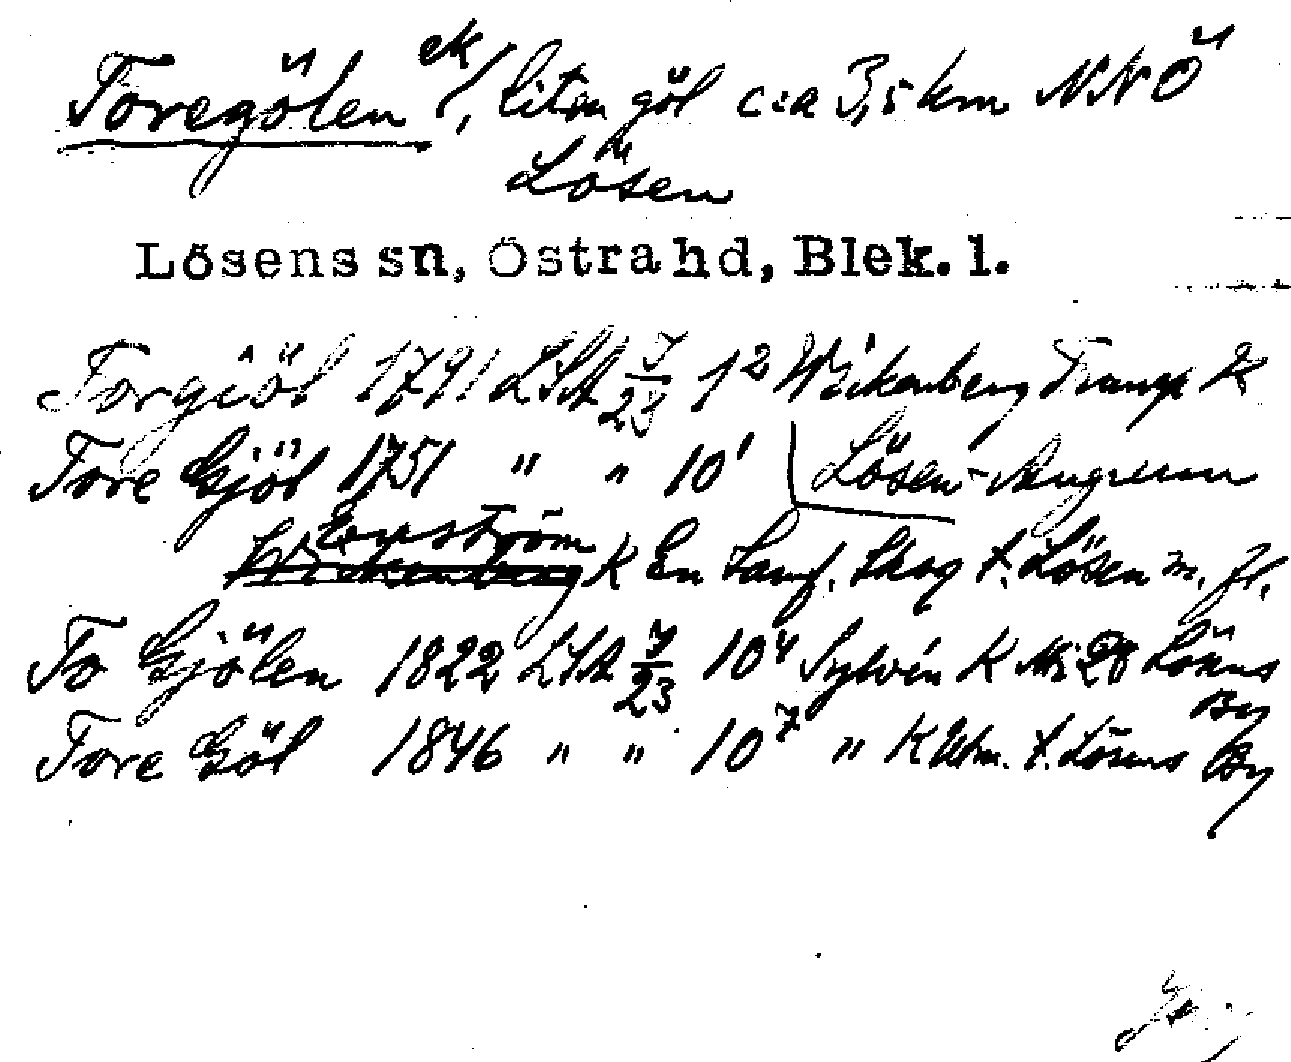 Toregölen ek/, liten göl c:a 3,5 km NNÖ
Lösen
Lösens sn, Östra hd, Blek. l.
Torgiöl 1791 LSA 7/23 1² Wickenberg Transp K
Tore Gjöl 1751 " " 10¹ Lösen-Augerum
Enström
Wickenberg K En Samf. Skog t. Lösen m. fl.
To Gjölen 1822 LSA 7/23 10⁴ Sylvén K Lösens
By
Tore Göl 1846 " " 10⁷ " K Utm. t. Lösens By